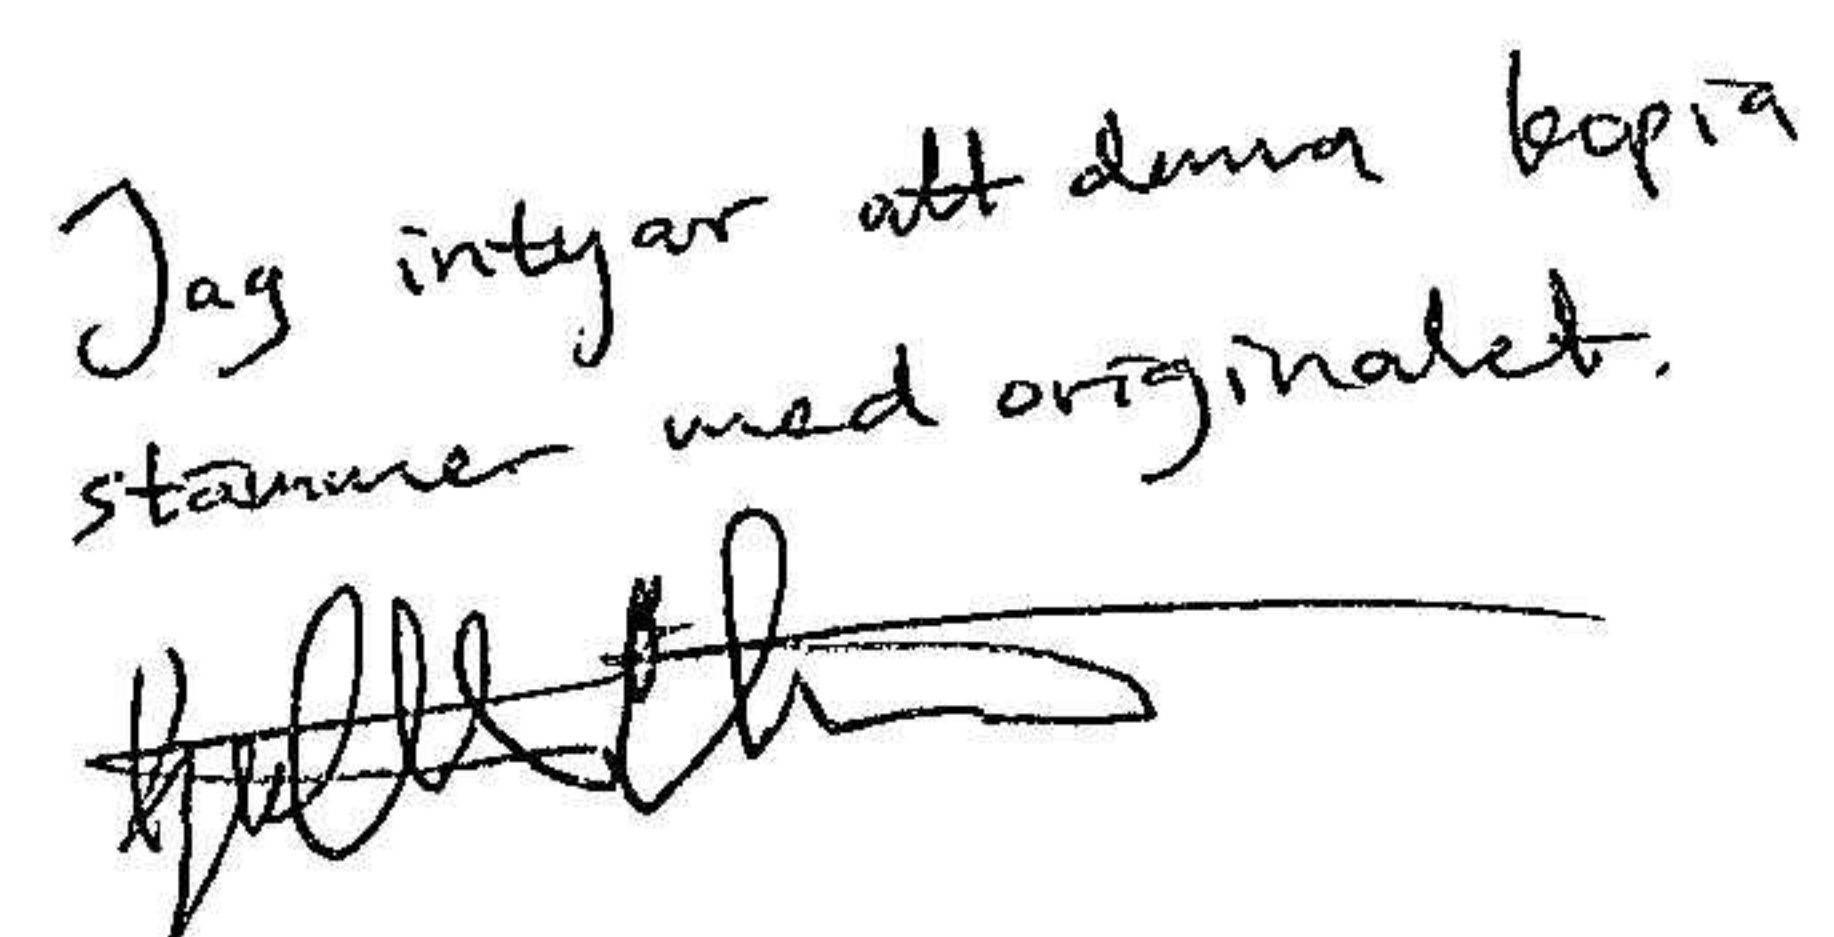 Jag intyar att denna kopia
stämmer med originalet.